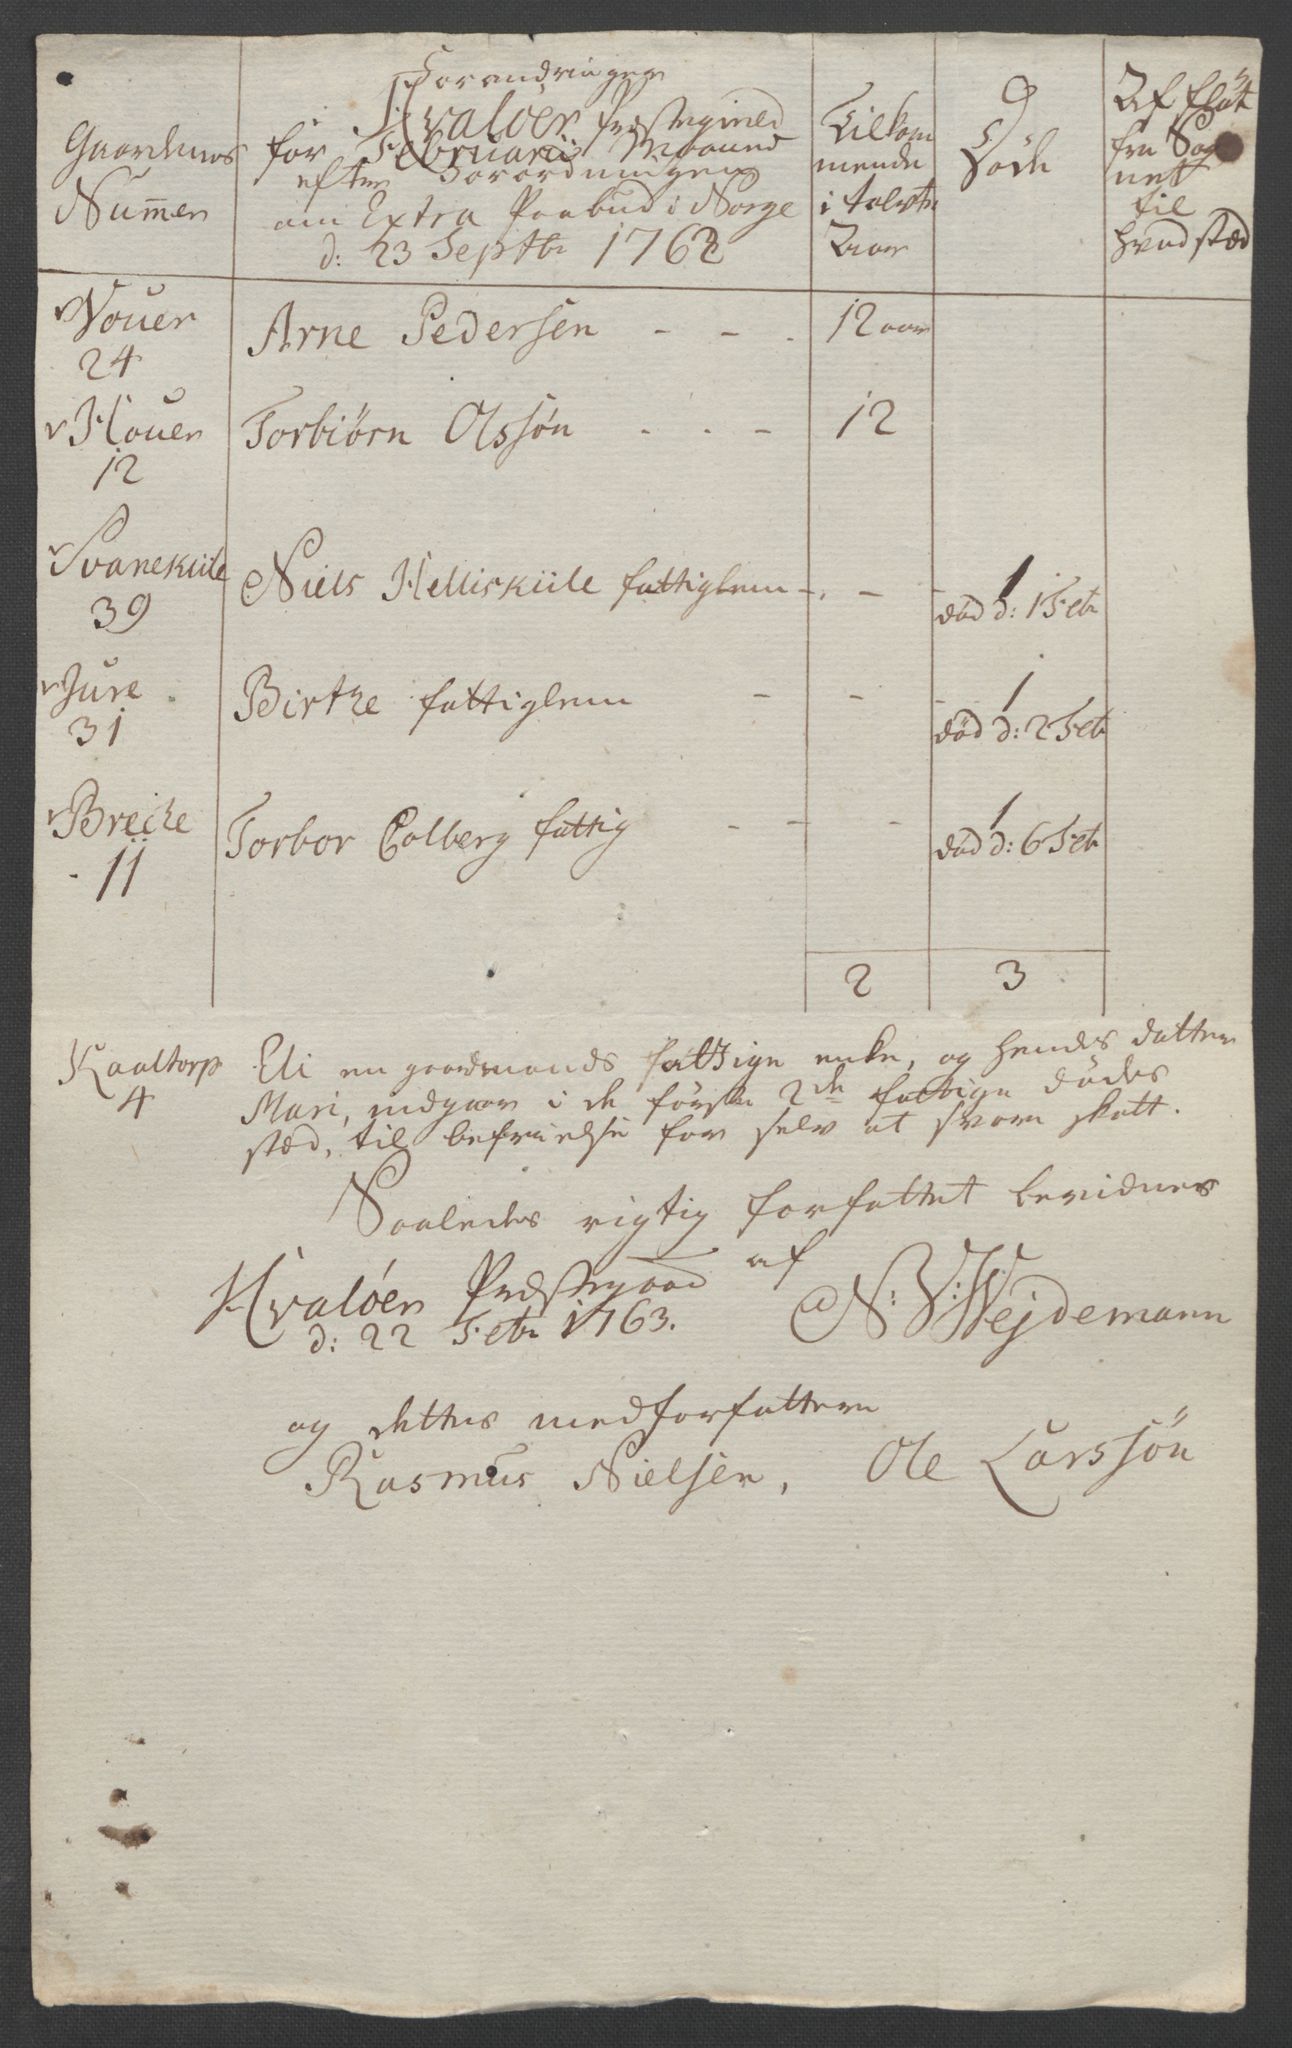 Gaardenes
Nummer
Forandringer
Hvaløer Præstegield
for Februarii Maaned
efter Forordningen
om Extra Paabud i Norge
d: 23 Septbr 1762
Tilkom
mende
i tolvte
Aar
Døde
Af flöt
fra Sog
nett
til
hvad stæd
Vouer
24
Arne Pedersen - - . 12 aar
Houer
12
Torbiörn Olssön . . - 12
Svanekiile
39
Niels Helliskiile fattiglem - . - - 1
död d: 1 Febr
Jure
31
Birthe fattiglem - - - 1
död d: 2 Febr
Breche
11
Torbor Colberg fattig - - - 1
död d: 6 Febr
2 3
Kaaltorp
4
Eli en gaardmands fattige enke, og hendes datter
Mari, indgaar i de første 2de fattige dødes
stæd, til befrielse for selv at svare skatt.
Saaledes rigtig forfattet bevidnes
af
Hvaløer Præstegaard
d: 22 Febr 1763.
N: V: Wejdemann
og dettes medforfattere
Rasmus Nielsen, Ole Larssön